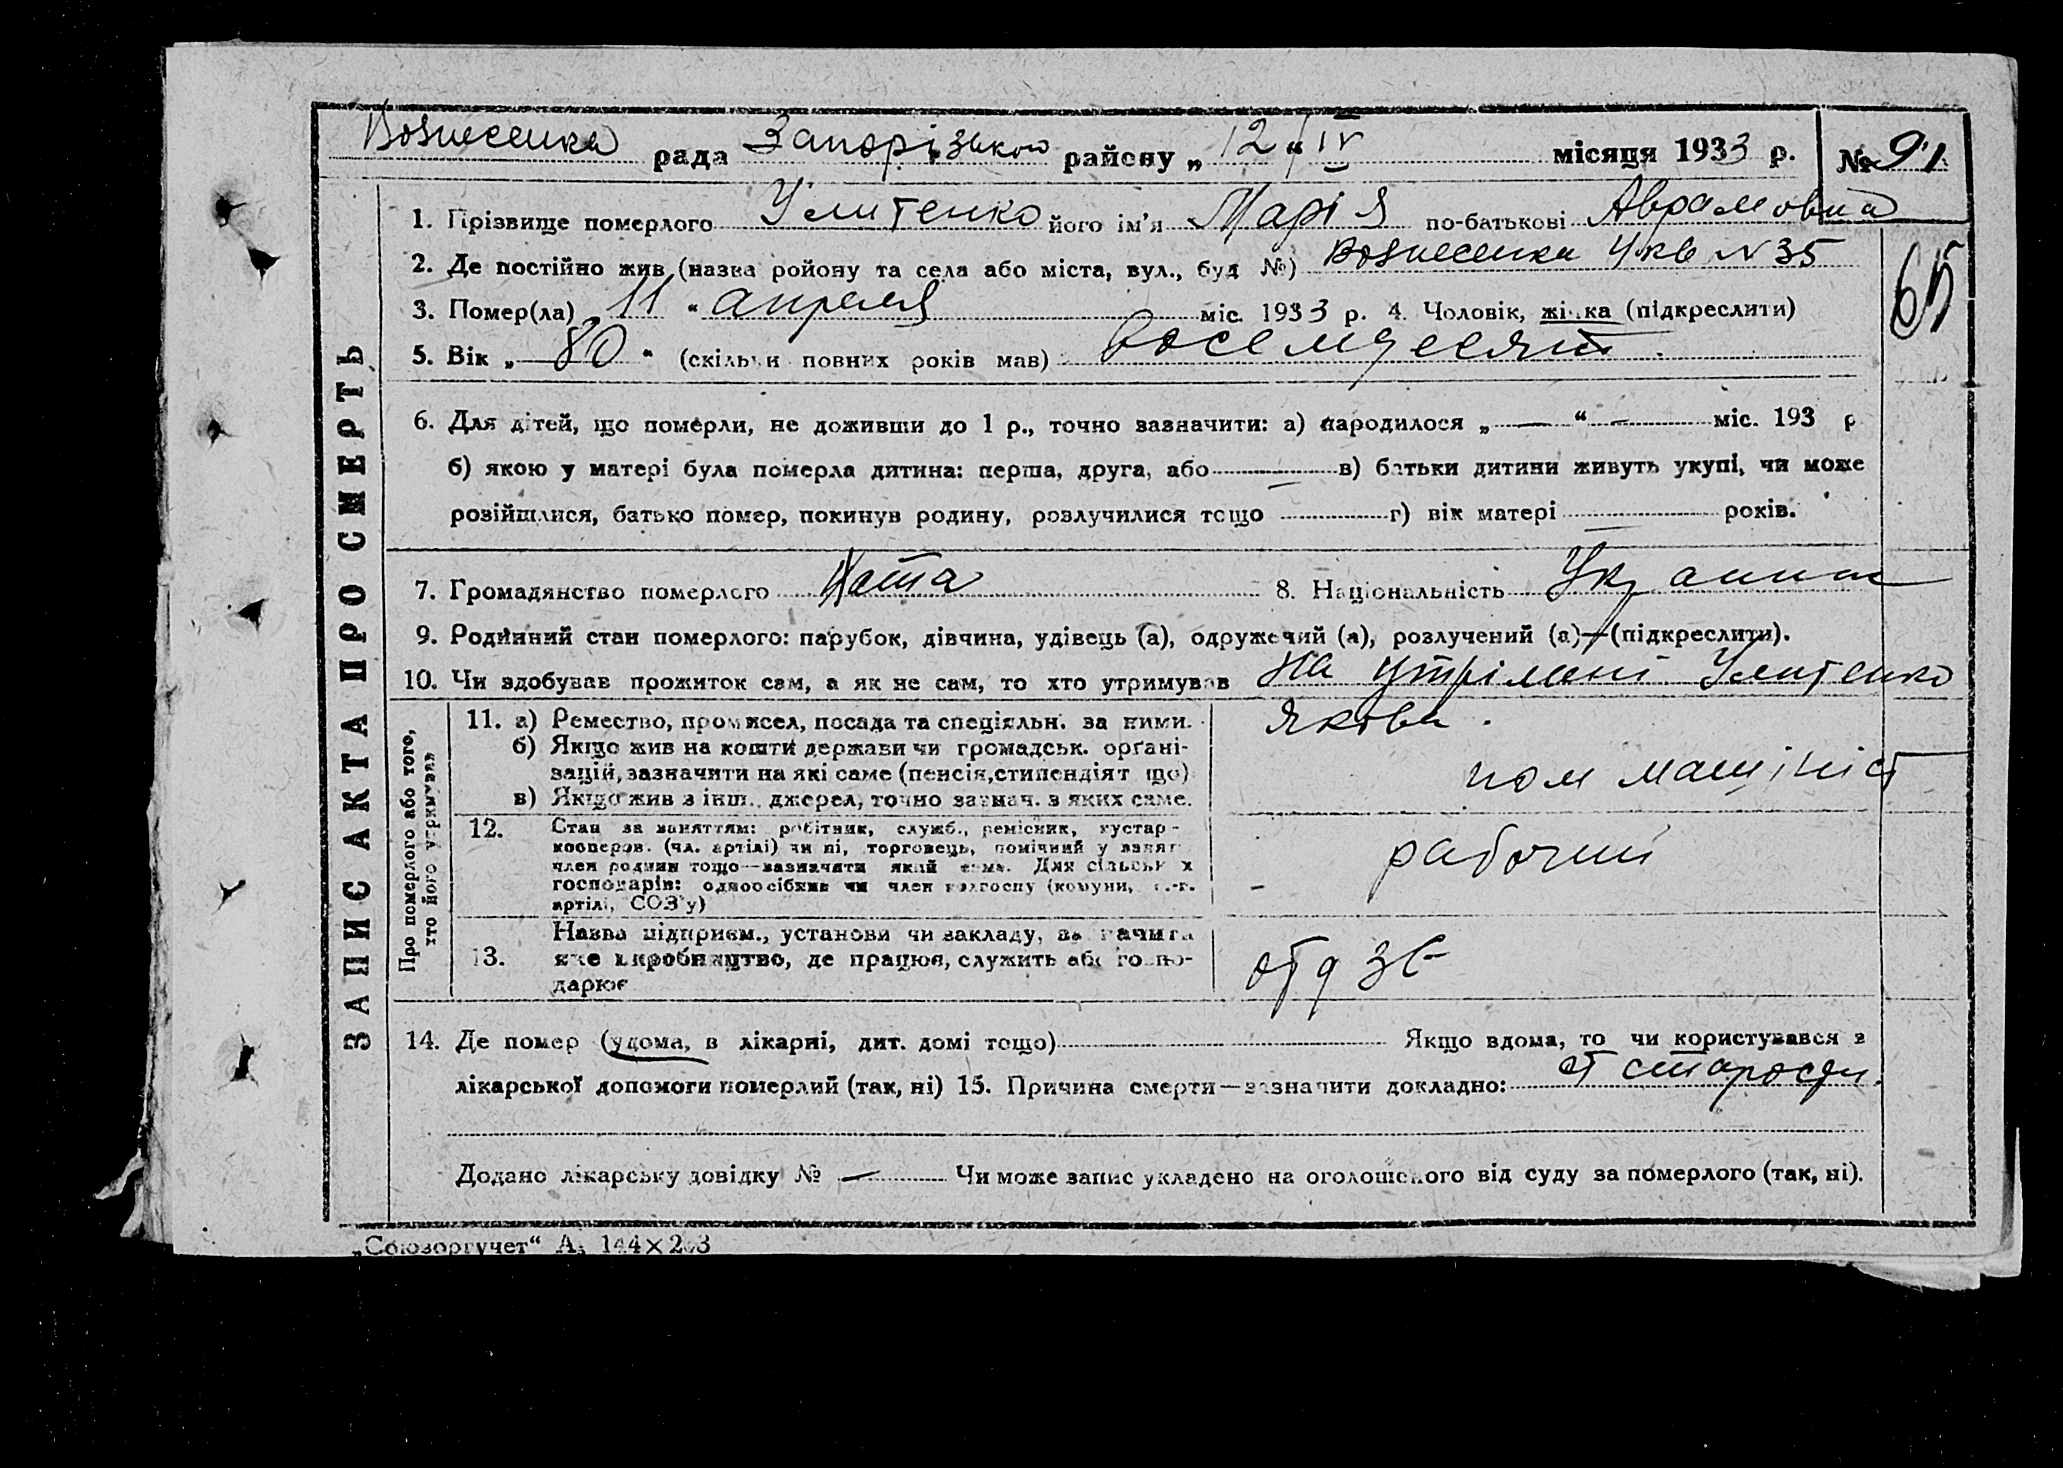 Вознесенка рада Запорізького району „12“ IV місяця 1933 р. № 91
1. Прізвище померлого Улитенко його ім'я Марія по-батькові Аврамовна
2. Де постійно жив (назва району та села або міста, вул., буд №) Вознесенка 4 кв N 35
65
3. Помер(ла) 11 “ апреля міс. 1933 р. 4. Чоловік, жінка (підкреслити)
5. Вік „ 80 “ (скільки повних років мав) восемдесят
6. Для дітей, що померли, не доживши до 1 р., точно зазначити: а) народилося „ — “ — міс. 193 р
б) якою у матері була померла дитина: перша, друга, або — в) батьки дитини живуть укупі, чи може
розійшлися, батько помер, покинув родину, розлучилися тощо г) вік матері — років.
7. Громадянство померлого 8. Національність Украинка
9. Родинний стан померлого: парубок, дівчина, удівець (а), одружений (а), розлучений (а)—(підкреслити).
10. Чи здобував прожиток сам, а як не сам, то хто утримував на утрімані Улитенко
Якова.
ЗАПИС АКТА ПРО СМЕРТЬ
Про померлого або того,
хто його утримував
11. а) Ремество, промисел, посада та спеціяльн. за ними.
б) Якщо жив на кошти держави чи громадськ. органі-
зацій, зазначити на які саме (пенсія, стипендіят що)
в) Якщо жив з інш. джерел, точно зазнач. з яких саме.
пом машініст
12. Стан за заняттям: робітник, служб., ремісник, кустар-
кооперов. (чл. артілі) чи ні, торговець, помічний у занят
член родини тощо—зазначити який саме. Для сільськ х
господарів: одноосібник чи член колгоспу (комуни, с.-г.
артілі, СОЗ'у)
- рабочий
13. Назва підприєм., установи чи закладу, зазначити
яке виробництво, де працює, служить або госпо-
дарює
14. Де помер (удома, в лікарні, дит. домі тощо) Якщо вдома, то чи користувався з
лікарської допомоги померлий (так, ні) 15. Причина смерти—зазначити докладно: от старости.
Додано лікарську довідку № — Чи може запис укладено на оголошеного від суду за померлого (так, ні).
„Союзоргучет“ А₅ 144×203